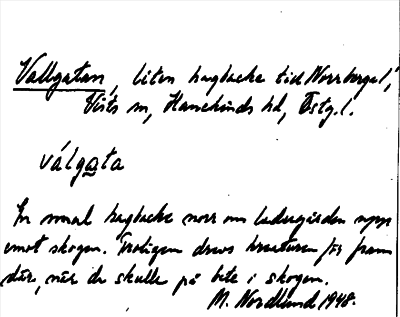 Vallgatan, liten hagbacke vid Norrberga!,
Vists sn, Hanekinds hd, Östg.l.
válgata
En smal hagbacke norr om ladugården upp
emot skogen. Troligen drevs kreaturen för fram
där, när de skulle på bete i skogen.
M. Nordlund 1948.